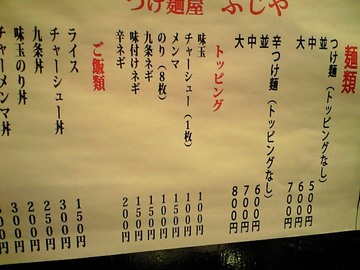 つけ麺屋 ふじや
麺類
つけ麺(トッピングなし)
並 500円
中 600円
大 700円
辛つけ麺(トッピングなし)
並 600円
中 700円
大 800円
トッピング
味玉 100円
チャーシュー(1枚) 100円
メンマ 150円
のり(8枚) 100円
九条ネギ 150円
味付けネギ 150円
辛ネギ 200円
ご飯類
ライス 150円
チャーシュー丼 300円
九条丼 250円
味玉のり丼
チャーメンマ丼